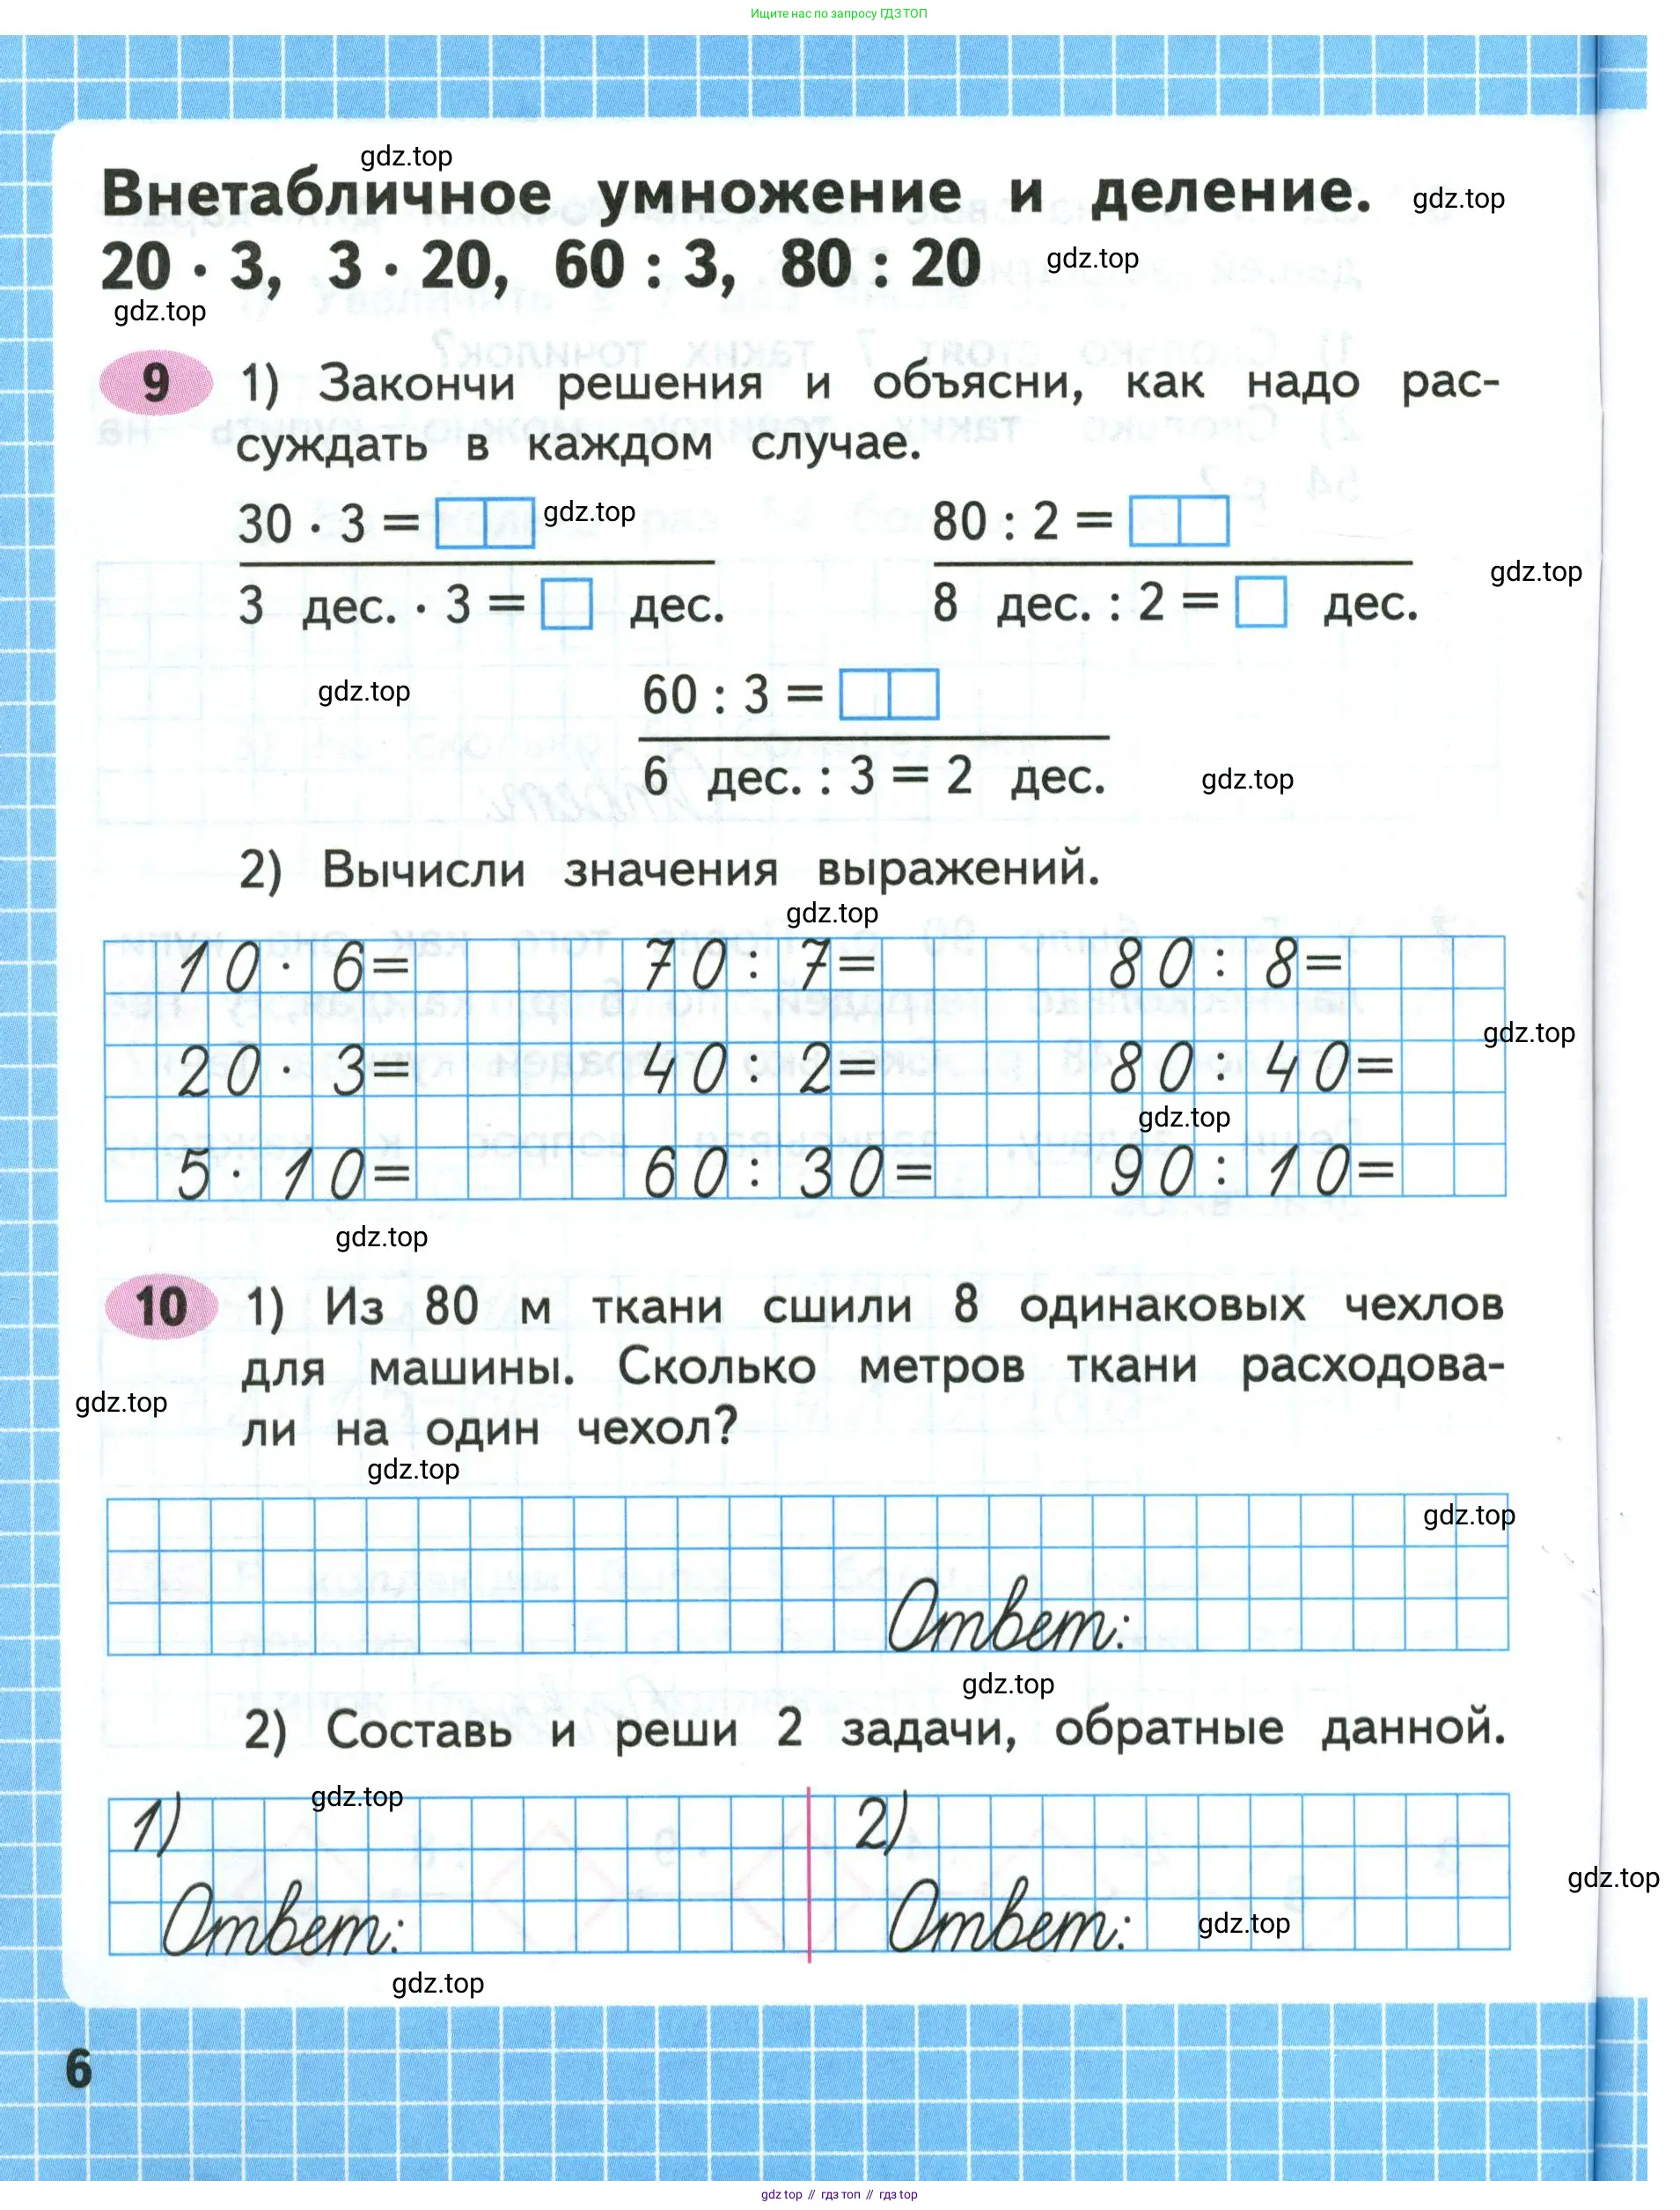 Ищите нас по запросу ГДЗ ТОП
gdz.top
Внетабличное умножение и деление.
gdz.top
20 · 3, 3 · 20, 60 : 3, 80 : 20
gdz.top
gdz.top
9 1) Закончи решения и объясни, как надо рас-
суждать в каждом случае.
30 · 3 =
gdz.top
80 : 2 =
gdz.top
3 дес. · 3 = дес.
8 дес. : 2 = дес.
gdz.top
60 : 3 =
6 дес. : 3 = 2 дес.
gdz.top
2) Вычисли значения выражений.
gdz.top
10 · 6= 70 : 7= 80 : 8=
gdz.top
20 · 3= 40 : 2= 80 : 40=
gdz.top
5 · 10= 60 : 30= 90 : 10=
gdz.top
10 1) Из 80 м ткани сшили 8 одинаковых чехлов
для машины. Сколько метров ткани расходова-
gdz.top
ли на один чехол?
gdz.top
gdz.top
Ответ:
gdz.top
2) Составь и реши 2 задачи, обратные данной.
gdz.top
1) 2)
gdz.top
Ответ: Ответ:
gdz.top
gdz.top
6
gdz top // гдз топ // гдз top